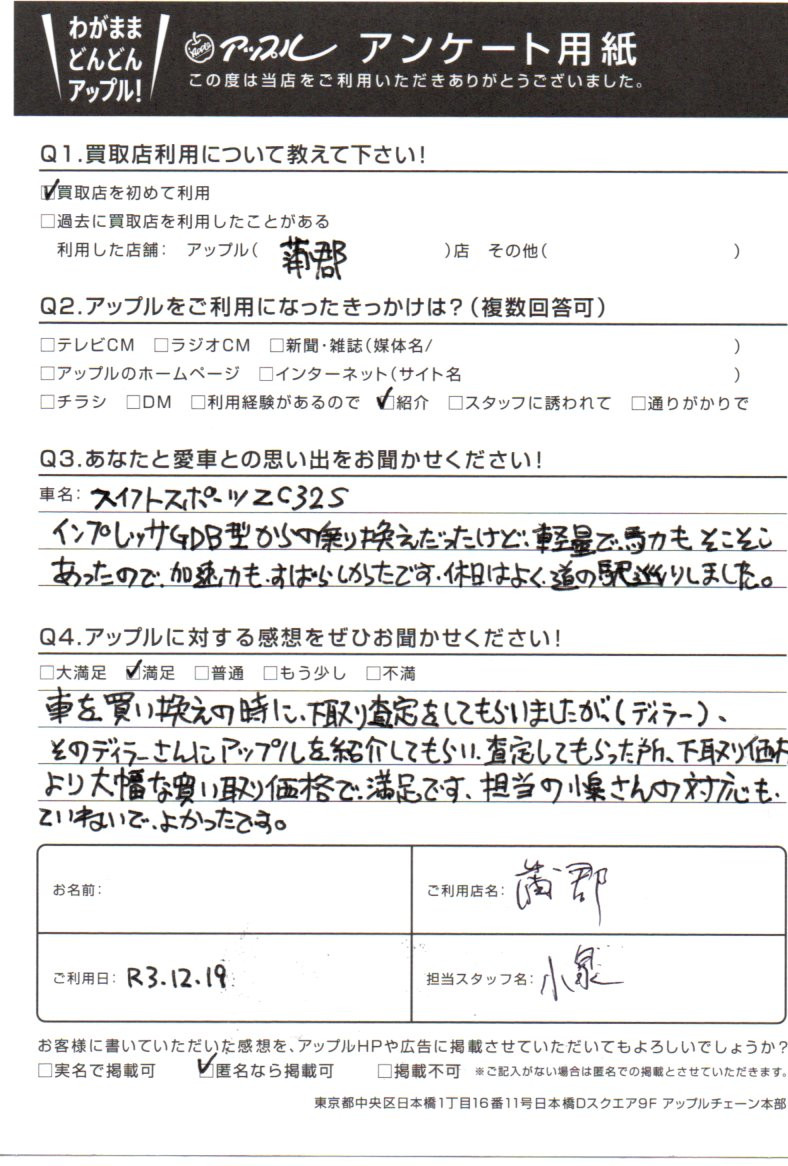 わがまま
どんどん
アップル!
アップル アンケート用紙
この度は当店をご利用いただきありがとうございました。
Q1.買取店利用について教えて下さい!
☑買取店を初めて利用
□過去に買取店を利用したことがある
利用した店舗: アップル( 蒲郡 )店 その他( )
Q2.アップルをご利用になったきっかけは?(複数回答可)
□テレビCM □ラジオCM □新聞・雑誌(媒体名/ )
□アップルのホームページ □インターネット(サイト名 )
□チラシ □DM □利用経験があるので ☑紹介 □スタッフに誘われて □通りがかりで
Q3.あなたと愛車との思い出をお聞かせください!
車名: スイフトスポーツZC32S
インプレッサGDB型からの乗り換えだったけど、軽量で、馬力もそこそこ
あったので、加速力も、すばらしかったです。休日はよく、道の駅巡りしました。
Q4.アップルに対する感想をぜひお聞かせください!
□大満足 ☑満足 □普通 □もう少し □不満
車を買い換えの時に、下取り査定をしてもらいましたが、(ディラー)、
そのディラーさんにアップルを紹介してもらい、査定してもらった所、下取り価格
より大幅な買い取り価格で、満足です、担当の小泉さんの対応も、
ていねいで、よかったです。
お名前:
ご利用店名: 蒲郡
ご利用日: R3.12.19
担当スタッフ名: 小泉
お客様に書いていただいた感想を、アップルHPや広告に掲載させていただいてもよろしいでしょうか?
□実名で掲載可 ☑匿名なら掲載可 □掲載不可 ※ご記入がない場合は匿名での掲載とさせていただきます。
東京都中央区日本橋1丁目16番11号日本橋Dスクエア9F アップルチェーン本部